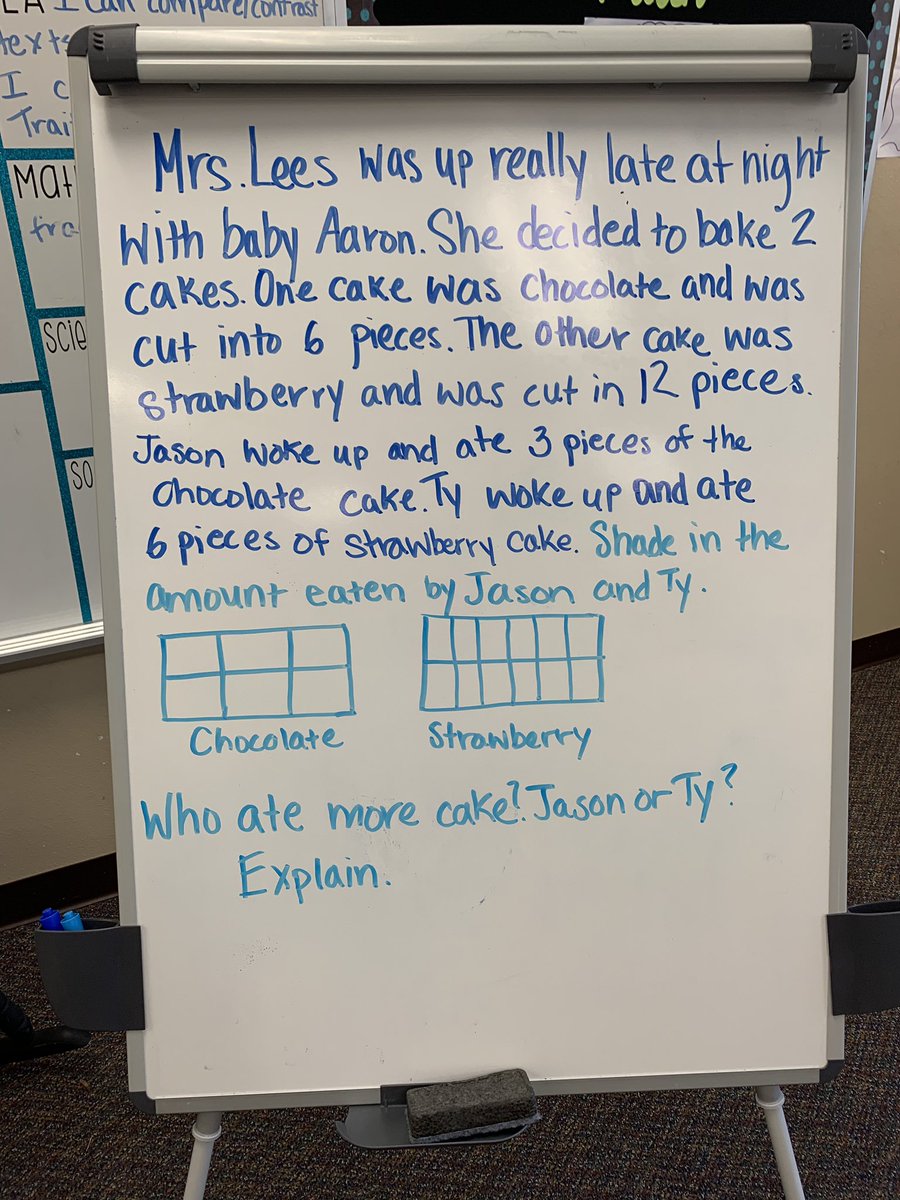 LA I can compare/contrast
texts
I c
Trai
Mat
fra
scie
so
Mrs. Lees was up really late at night
with baby Aaron. She decided to bake 2
cakes. One cake was chocolate and was
cut into 6 pieces. The other cake was
strawberry and was cut in 12 pieces.
Jason woke up and ate 3 pieces of the
chocolate cake. Ty woke up and ate
6 pieces of strawberry cake. Shade in the
amount eaten by Jason and Ty.
Chocolate Strawberry
Who ate more cake? Jason or Ty?
Explain.